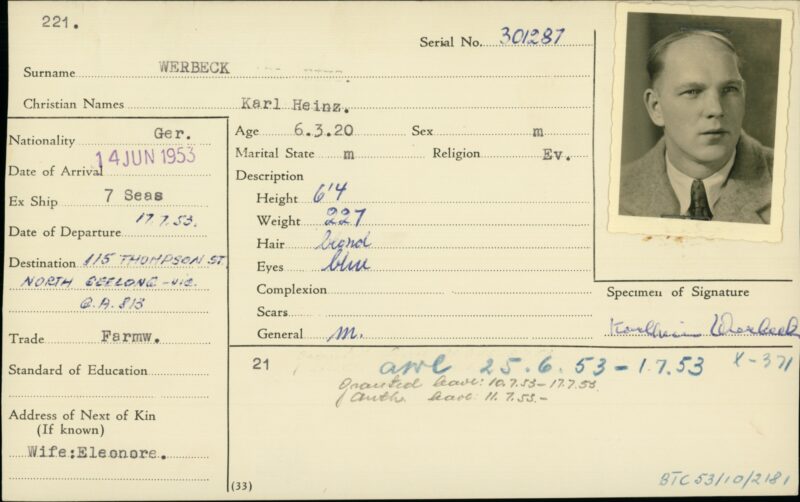 221.
Serial No. 301287
Surname WERBECK
Christian Names Karl Heinz.
Nationality Ger.
Date of Arrival 14 JUN 1953
Ex Ship 7 Seas
Date of Departure 17.7.53.
Destination 115 THOMPSON ST,
NORTH GEELONG - VIC.
Q.A. 813
Trade Farmw.
Standard of Education
Address of Next of Kin
(If known)
Wife:Eleonore.
Age 6.3.20 Sex m
Marital State m Religion Ev.
Description
Height 6'4
Weight 227
Hair
Eyes blue
Complexion
Scars
General m.
Specimen of Signature
Karlheinz Werbeck
21 awl 25.6.53 - 1.7.53 X-371
granted leave: 10.7.53 - 17.7.53
leave: 11.7.53.-
(33)
BTC 53/10/2181